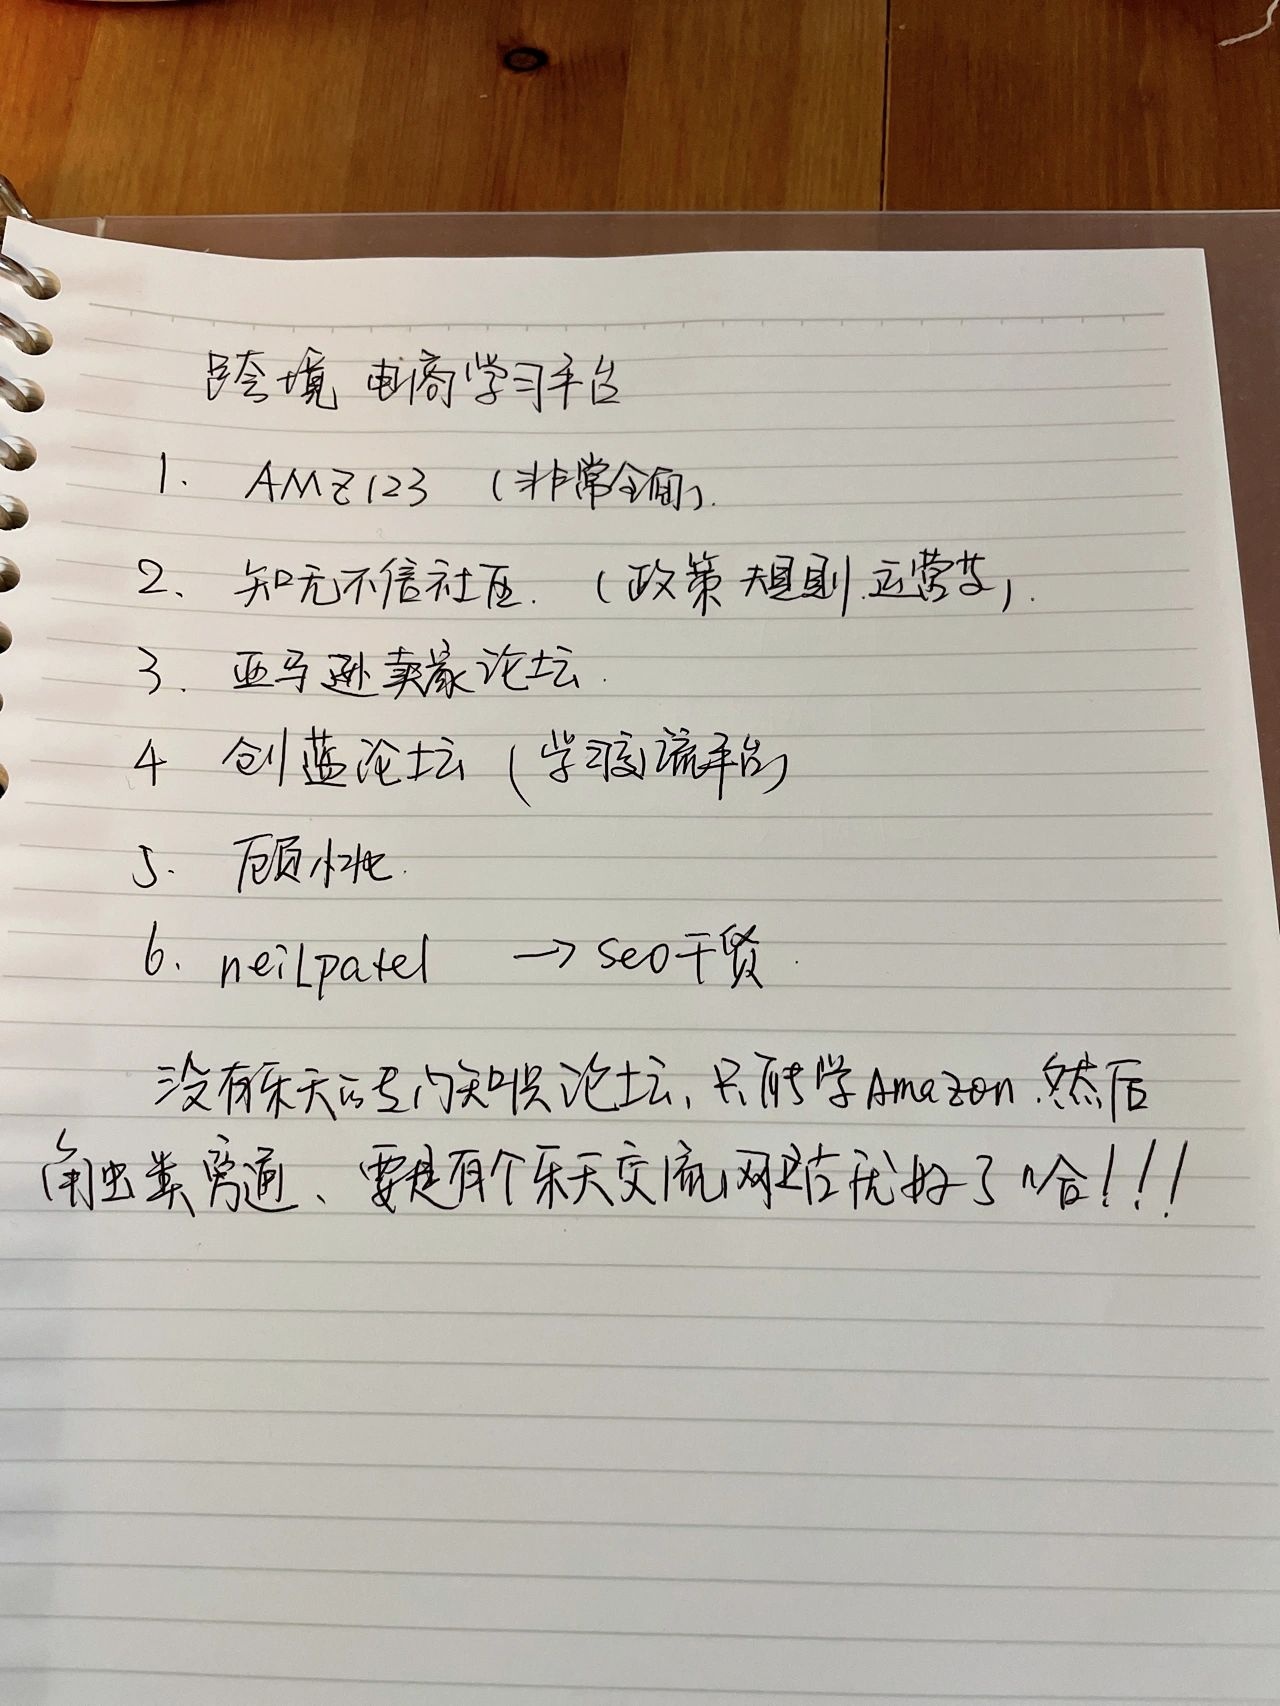 跨境电商学习平台
1. AMZ123 （非常全面）.
2、知无不信社区.（政策 规则.运营艺）.
3. 亚马逊卖家论坛.
4 创蓝论坛（学习交流平台）
5. 顾小北.
6. neilpatel → seo干货.
没有乐天的专门知识论坛，只能学Amazon.然后
触类旁通、要是有个乐天交流网站就好了哈！！！